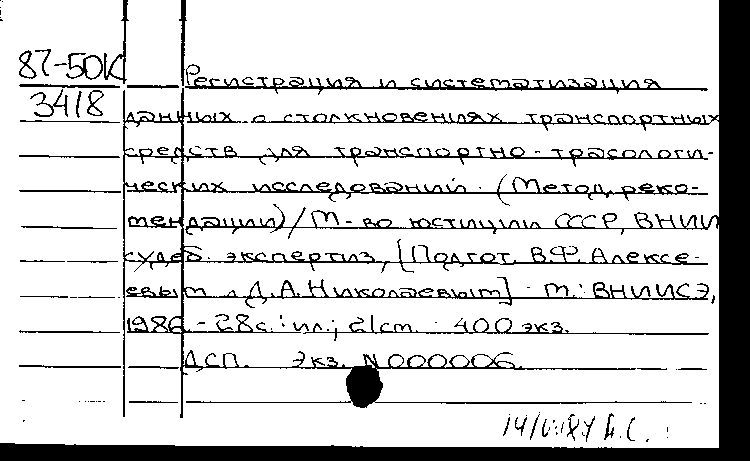 87-50К
3418
Регистрация и систематизация
данных о столкновениях транспортных
средств для транспортно-трасологи-
ческих исследований. (Метод. реко-
мендации)/М-во юстиции СССР, ВНИИ
судеб. экспертиз, [Подгот. В.Ф. Алексе-
евым и Д.А. Николаевым]. М.: ВНИИСЭ,
1986. - 28 с.: ил.; 21 см. 400 экз.
ДСП. Экз. N 000006.